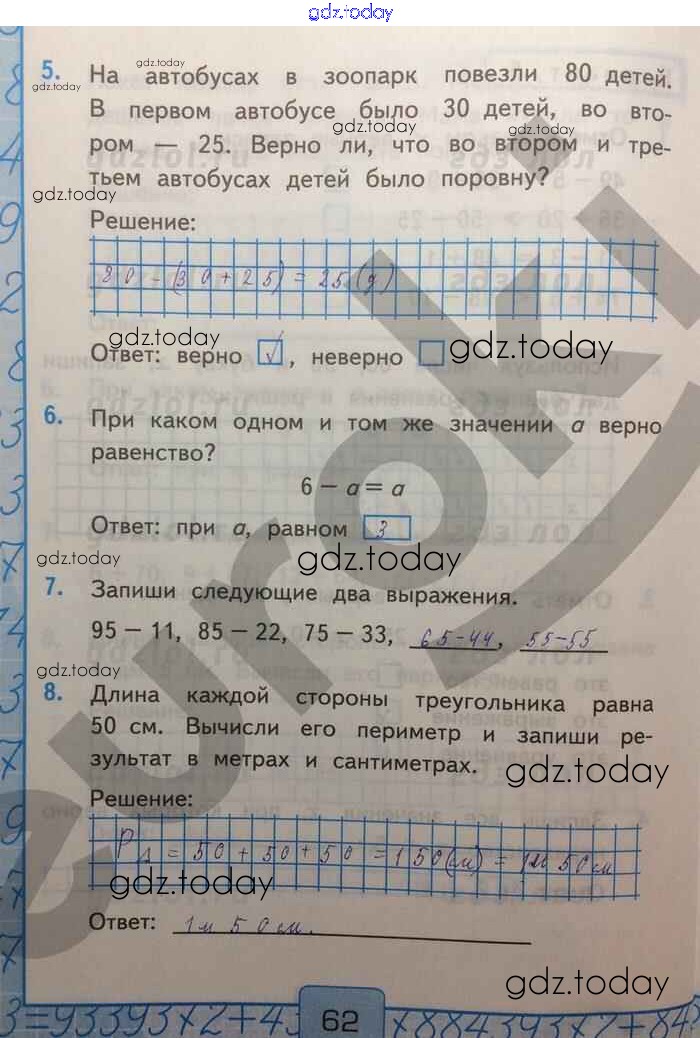 gdz.today
5. На автобусах в зоопарк повезли 80 детей.
В первом автобусе было 30 детей, во вто-
ром — 25. Верно ли, что во втором и тре-
тьем автобусах детей было поровну?
Решение:
80 - (30 + 25) = 25 (д)
Ответ: верно ☑, неверно ☐
gdz.today
6. При каком одном и том же значении a верно
равенство?
6 − a = a
Ответ: при a, равном 3
gdz.today
7. Запиши следующие два выражения.
95 − 11, 85 − 22, 75 − 33, 65-44, 55-55
gdz.today
8. Длина каждой стороны треугольника равна
50 см. Вычисли его периметр и запиши ре-
зультат в метрах и сантиметрах.
gdz.today
Решение:
P△ = 50 + 50 + 50 = 150 (см) = 1м 50 см
gdz.today
Ответ: 1м 50 см.
gdz.today
62